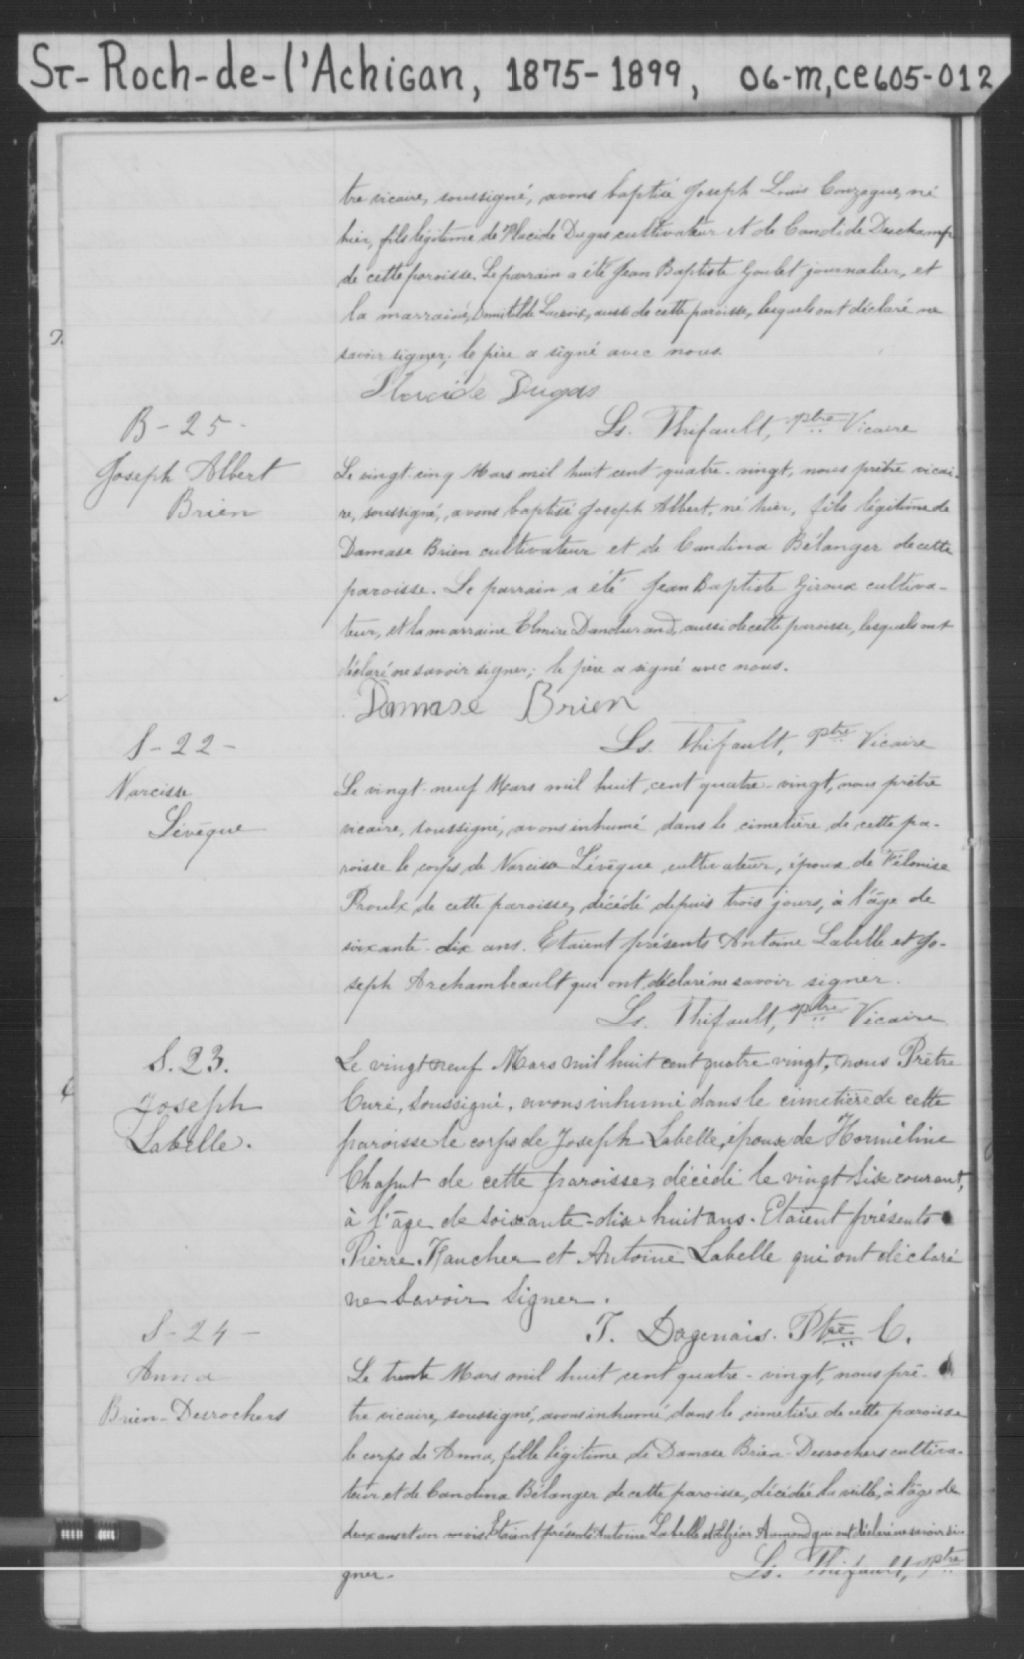 St-Roch-de-l'Achigan, 1875-1899, 06-M, CE605-012
tre vicaire, soussigné, avons baptisé Joseph Louis Gonzague, né
hier, fils légitime de Placide Dugas cultivateur et de Candide Deschamps
de cette paroisse. Le parrain a été Jean Baptiste Goulet journalier, et
la marraine, Lacroix, aussi de cette paroisse, lesquels ont déclaré ne
savoir signer; le père a signé avec nous.
Placide Dugas
Ls. Thifault, Ptre Vicaire
B-25-
Joseph Albert
Brien
Le vingt-cinq Mars mil huit cent quatre-vingt, nous prêtre vicai-
re, soussigné, avons baptisé Joseph Albert, né hier, fils légitime de
Damase Brien cultivateur et de Candina Bélanger de cette
paroisse. Le parrain a été Jean Baptiste Giroux cultiva-
teur, et la marraine Elmire Dandurand, aussi de cette paroisse, lesquels ont
déclaré ne savoir signer; le père a signé avec nous.
Damase Brien
Ls. Thifault, Ptre Vicaire
S-22-
Narcisse
Lévèque
Le vingt-neuf Mars mil huit cent quatre-vingt, nous prêtre
vicaire, soussigné, avons inhumé dans le cimetière de cette pa-
roisse le corps de Narcisse Lévèque cultivateur, époux de Félonise
Proulx de cette paroisse, décédé depuis trois jours, à l'âge de
soixante-dix ans. Etaient présents Antoine Labelle et Jo-
seph Archambeault qui ont déclaré ne savoir signer.
Ls. Thifault, Ptre Vicaire
S.23.
Joseph
Labelle.
Le vingt neuf Mars mil huit cent quatre-vingt, nous Prêtre
Curé, soussigné, avons inhumé dans le cimetière de cette
paroisse le corps de Joseph Labelle, époux de Horméline
Chaput de cette paroisse, décédé le vingt six courant,
à l'âge de soixante-dix-huit ans. Etaient présents
Pierre Faucher et Antoine Labelle qui ont déclaré
ne savoir signer.
T. Dagenais. Ptre C.
S-24-
Anna
Brien-Desrochers
Le trente Mars mil huit cent quatre-vingt, nous prê-
tre vicaire, soussigné, avons inhumé dans le cimetière de cette paroisse
le corps de Anna, fille légitime de Damase Brien-Desrochers cultiva-
teur et de Candina Bélanger de cette paroisse, décédée la veille, à l'âge de
deux ans et un mois. Etaient présents Antoine Labelle et Elzéar qui ont déclaré ne savoir si-
gner.
Ls. Thifault, Ptre